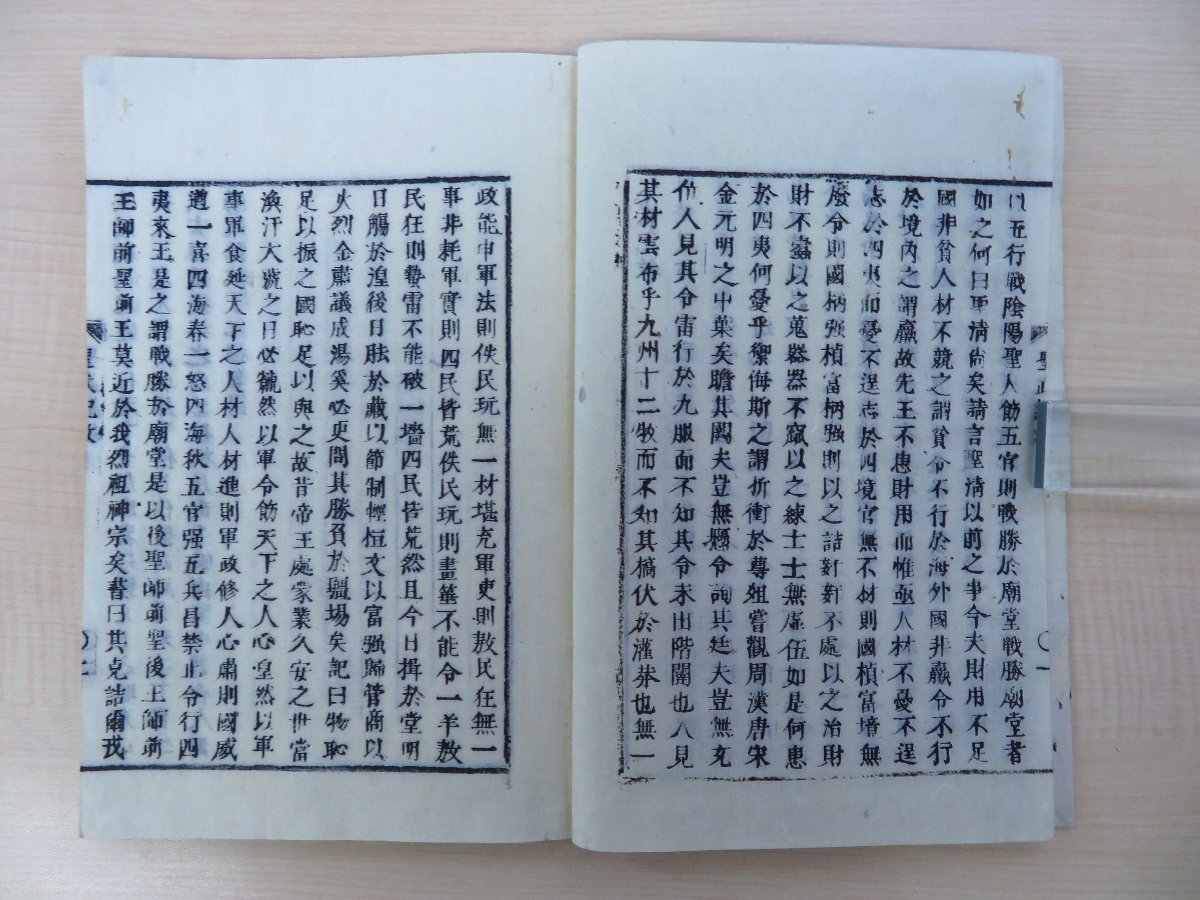 以五行戰陰陽聖人飭五官則戰勝於廟堂戰勝廟堂者
如之何曰聖清尚矣請言聖清以前之事今夫財用不足
國非貧人材不競之謂貧令不行於海外國非羸令不行
於境內之謂羸故先王不患財用而惟亟人材不憂不逞
志於四夷而憂不逞志於四境官無不材則國楨富境無
廢令則國柄强楨富柄强則以之詰奸奸不處以之治財
財不蠹以之蒐器器不窳以之練士士無虛伍如是何患
於四夷何憂乎禦侮斯之謂折衝於尊俎嘗觀周漢唐宋
金元明之中葉矣瞻其闕夫豈無懸令詢其廷夫豈無充
位人見其令雷行於九服而不知其令未出階闥也人見
其材雲布乎九州十二牧而不知其槁伏於灌莽也無一
政能申軍法則佚民玩無一材堪充軍吏則敖民狂無一
事非耗軍實則四民皆荒佚民玩則畫箠不能令一羊敖
民狂則蟄雷不能破一墻四民皆荒然且今日揖於堂明
日觴於隍後日胠於藏以節制輕桓文以富强歸管商以
火烈金肅議成湯奚必更問其勝負於疆場矣記曰物恥
足以振之國恥足以興之故昔帝王處蒙業久安之世當
渙汗大號之日必虩然以軍令飭天下之人心皇然以軍
事軍食延天下之人材人材進則軍政修人心肅則國威
遒一喜四海春一怒四海秋五官强五兵昌禁止令行四
夷來王是之謂戰勝於廟堂是以後聖師前聖後王師前
王師前聖前王莫近於我烈祖神宗矣書曰其克詰爾戎